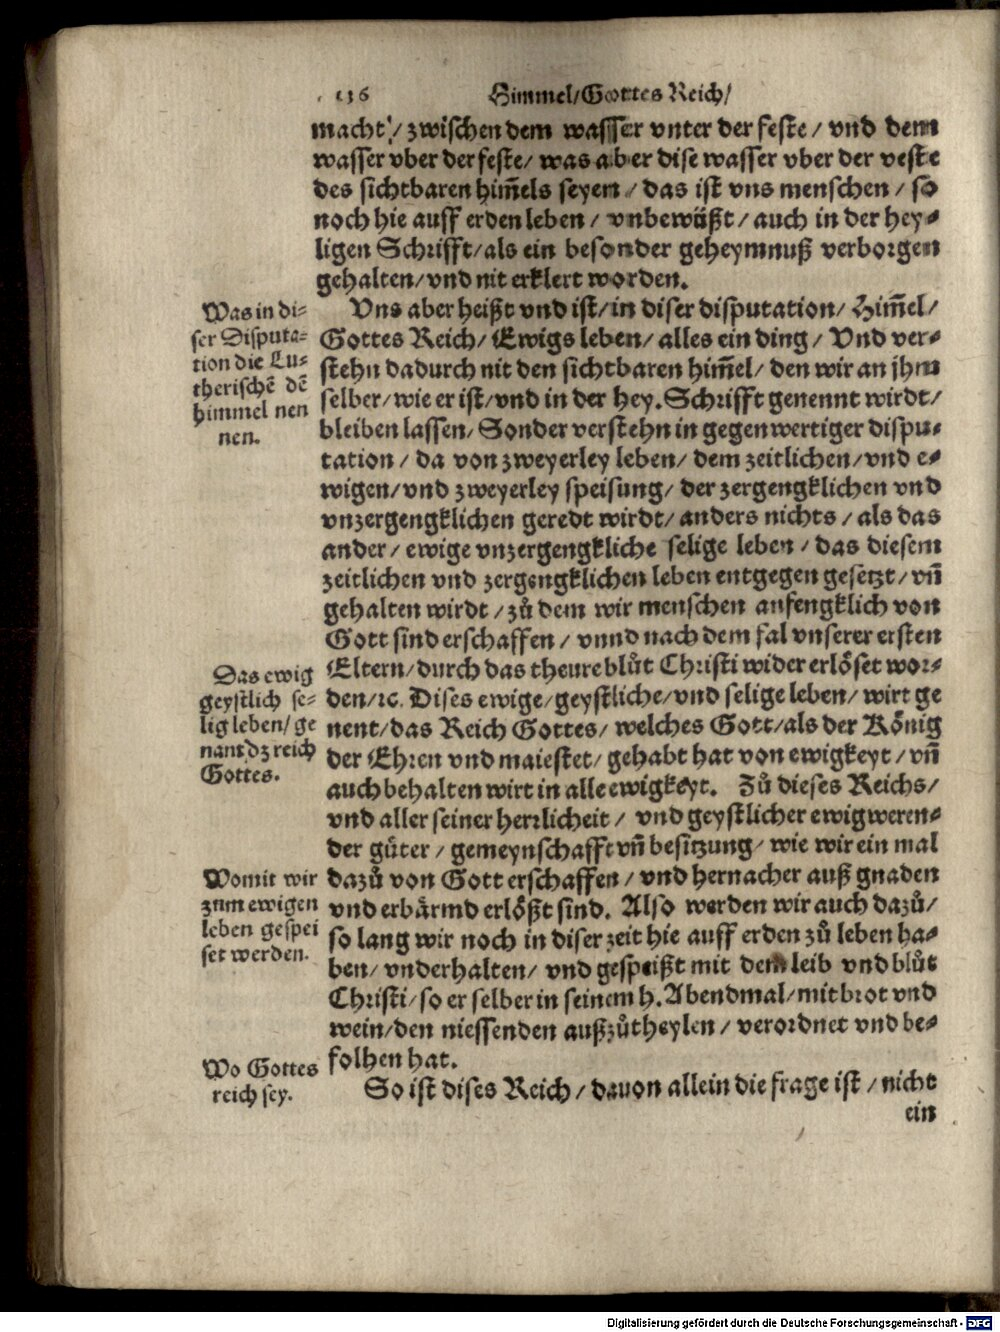 136 Himmel/Gottes Reich/
macht/ zwischen dem wasser vnter der feste/ vnd dem
wasser vber der feste/ was aber dise wasser vber der veste
des sichtbaren him̃els seyen/ das ist vns menschen/ so
noch hie auff erden leben/ vnbewüßt/ auch in der hey⸗
ligen Schrifft/als ein besonder geheymnuß verborgen
gehalten/vnd nit erklert worden.
Was in di⸗
ser Disputa⸗
tion die Lu⸗
therischẽ dẽ
himmel nen
nen.
Vns aber heißt vnd ist/in diser disputation/ Him̃el/
Gottes Reich/ Ewigs leben/ alles ein ding/ Vnd ver⸗
stehn dadurch nit den sichtbaren him̃el/ den wir an jhm
selber/wie er ist/vnd in der hey. Schrifft genennt wirdt/
bleiben lassen/ Sonder verstehn in gegenwertiger dispu⸗
tation/ da von zweyerley leben/ dem zeitlichen/vnd e⸗
wigen/vnd zweyerley speisung/ der zergengklichen vnd
vnzergengklichen geredt wirdt/ anders nichts/ als das
ander/ ewige vnzergengkliche selige leben/ das diesem
zeitlichen vnd zergengklichen leben entgegen gesetzt/ vñ
gehalten wirdt/ zů dem wir menschen anfengklich von
Gott sind erschaffen/ vnnd nach dem fal vnserer ersten
Eltern/durch das theure blůt Christi wider erlöset wor⸗
den/ꝛc. Dises ewige/geystliche/vnd selige leben/ wirt ge
nent/das Reich Gottes/ welches Gott/als der König
der Ehren vnd maiestet/ gehabt hat von ewigkeyt/ vñ
auch behalten wirt in alle ewigkeyt. Zů dieses Reichs/
vnd aller seiner herrlicheit/ vnd geystlicher ewigweren⸗
der gůter/ gemeynschafft vñ besitzung/ wie wir ein mal
dazů von Gott erschaffen/ vnd hernacher auß gnaden
vnd erbärmd erlößt sind. Also werden wir auch dazů/
so lang wir noch in diser zeit hie auff erden zů leben ha⸗
ben/ vnderhalten/ vnd gespeißt mit dem leib vnd blůt
Christi/so er selber in seinem h. Abendmal/mit brot vnd
wein/den niessenden außzůtheylen/ verordnet vnd be⸗
folhen hat.
Das ewig
geystlich se⸗
lig leben/ ge
nant dz reich
Gottes.
Womit wir
zum ewigen
leben gespei
set werden.
Wo Gottes
reich sey.
So ist dises Reich/ dauon allein die frage ist/ nicht
ein
Digitalisierung gefördert durch die Deutsche Forschungsgemeinschaft - DFG